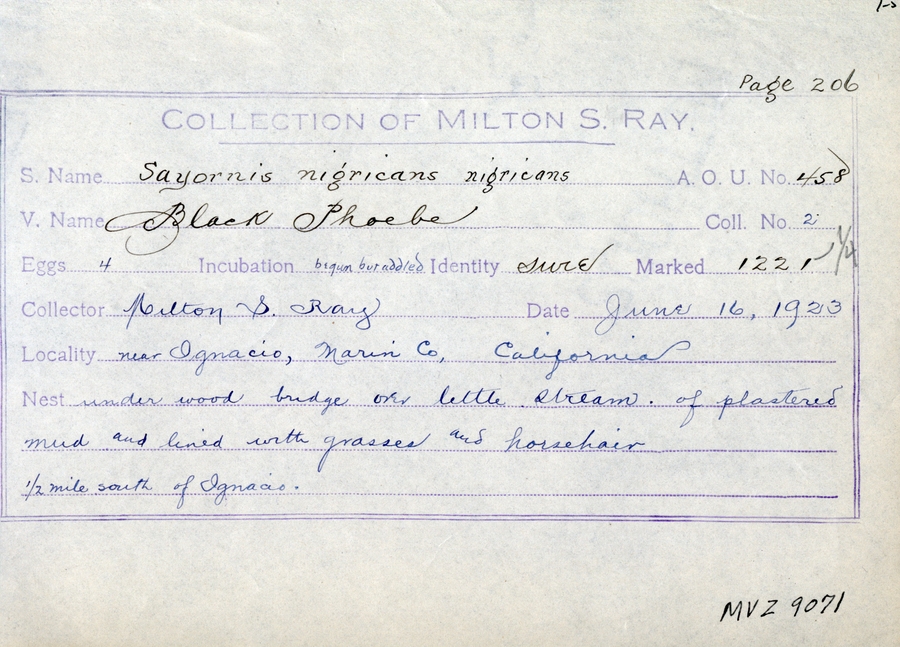 Page 206
COLLECTION OF MILTON S. RAY.
S. Name Sayornis nigricans nigricans A. O. U. No. 458
V. Name Black Phoebe Coll. No. 2
Eggs 4 Incubation begun but addled Identity sure Marked 1221 1/4
Collector Milton S. Ray Date June 16, 1923
Locality near Ignacio, Marin Co, California
Nest under wood bridge over little stream. of plastered
mud and lined with grasses and horsehair
1/2 mile south of Ignacio.
MVZ 9071